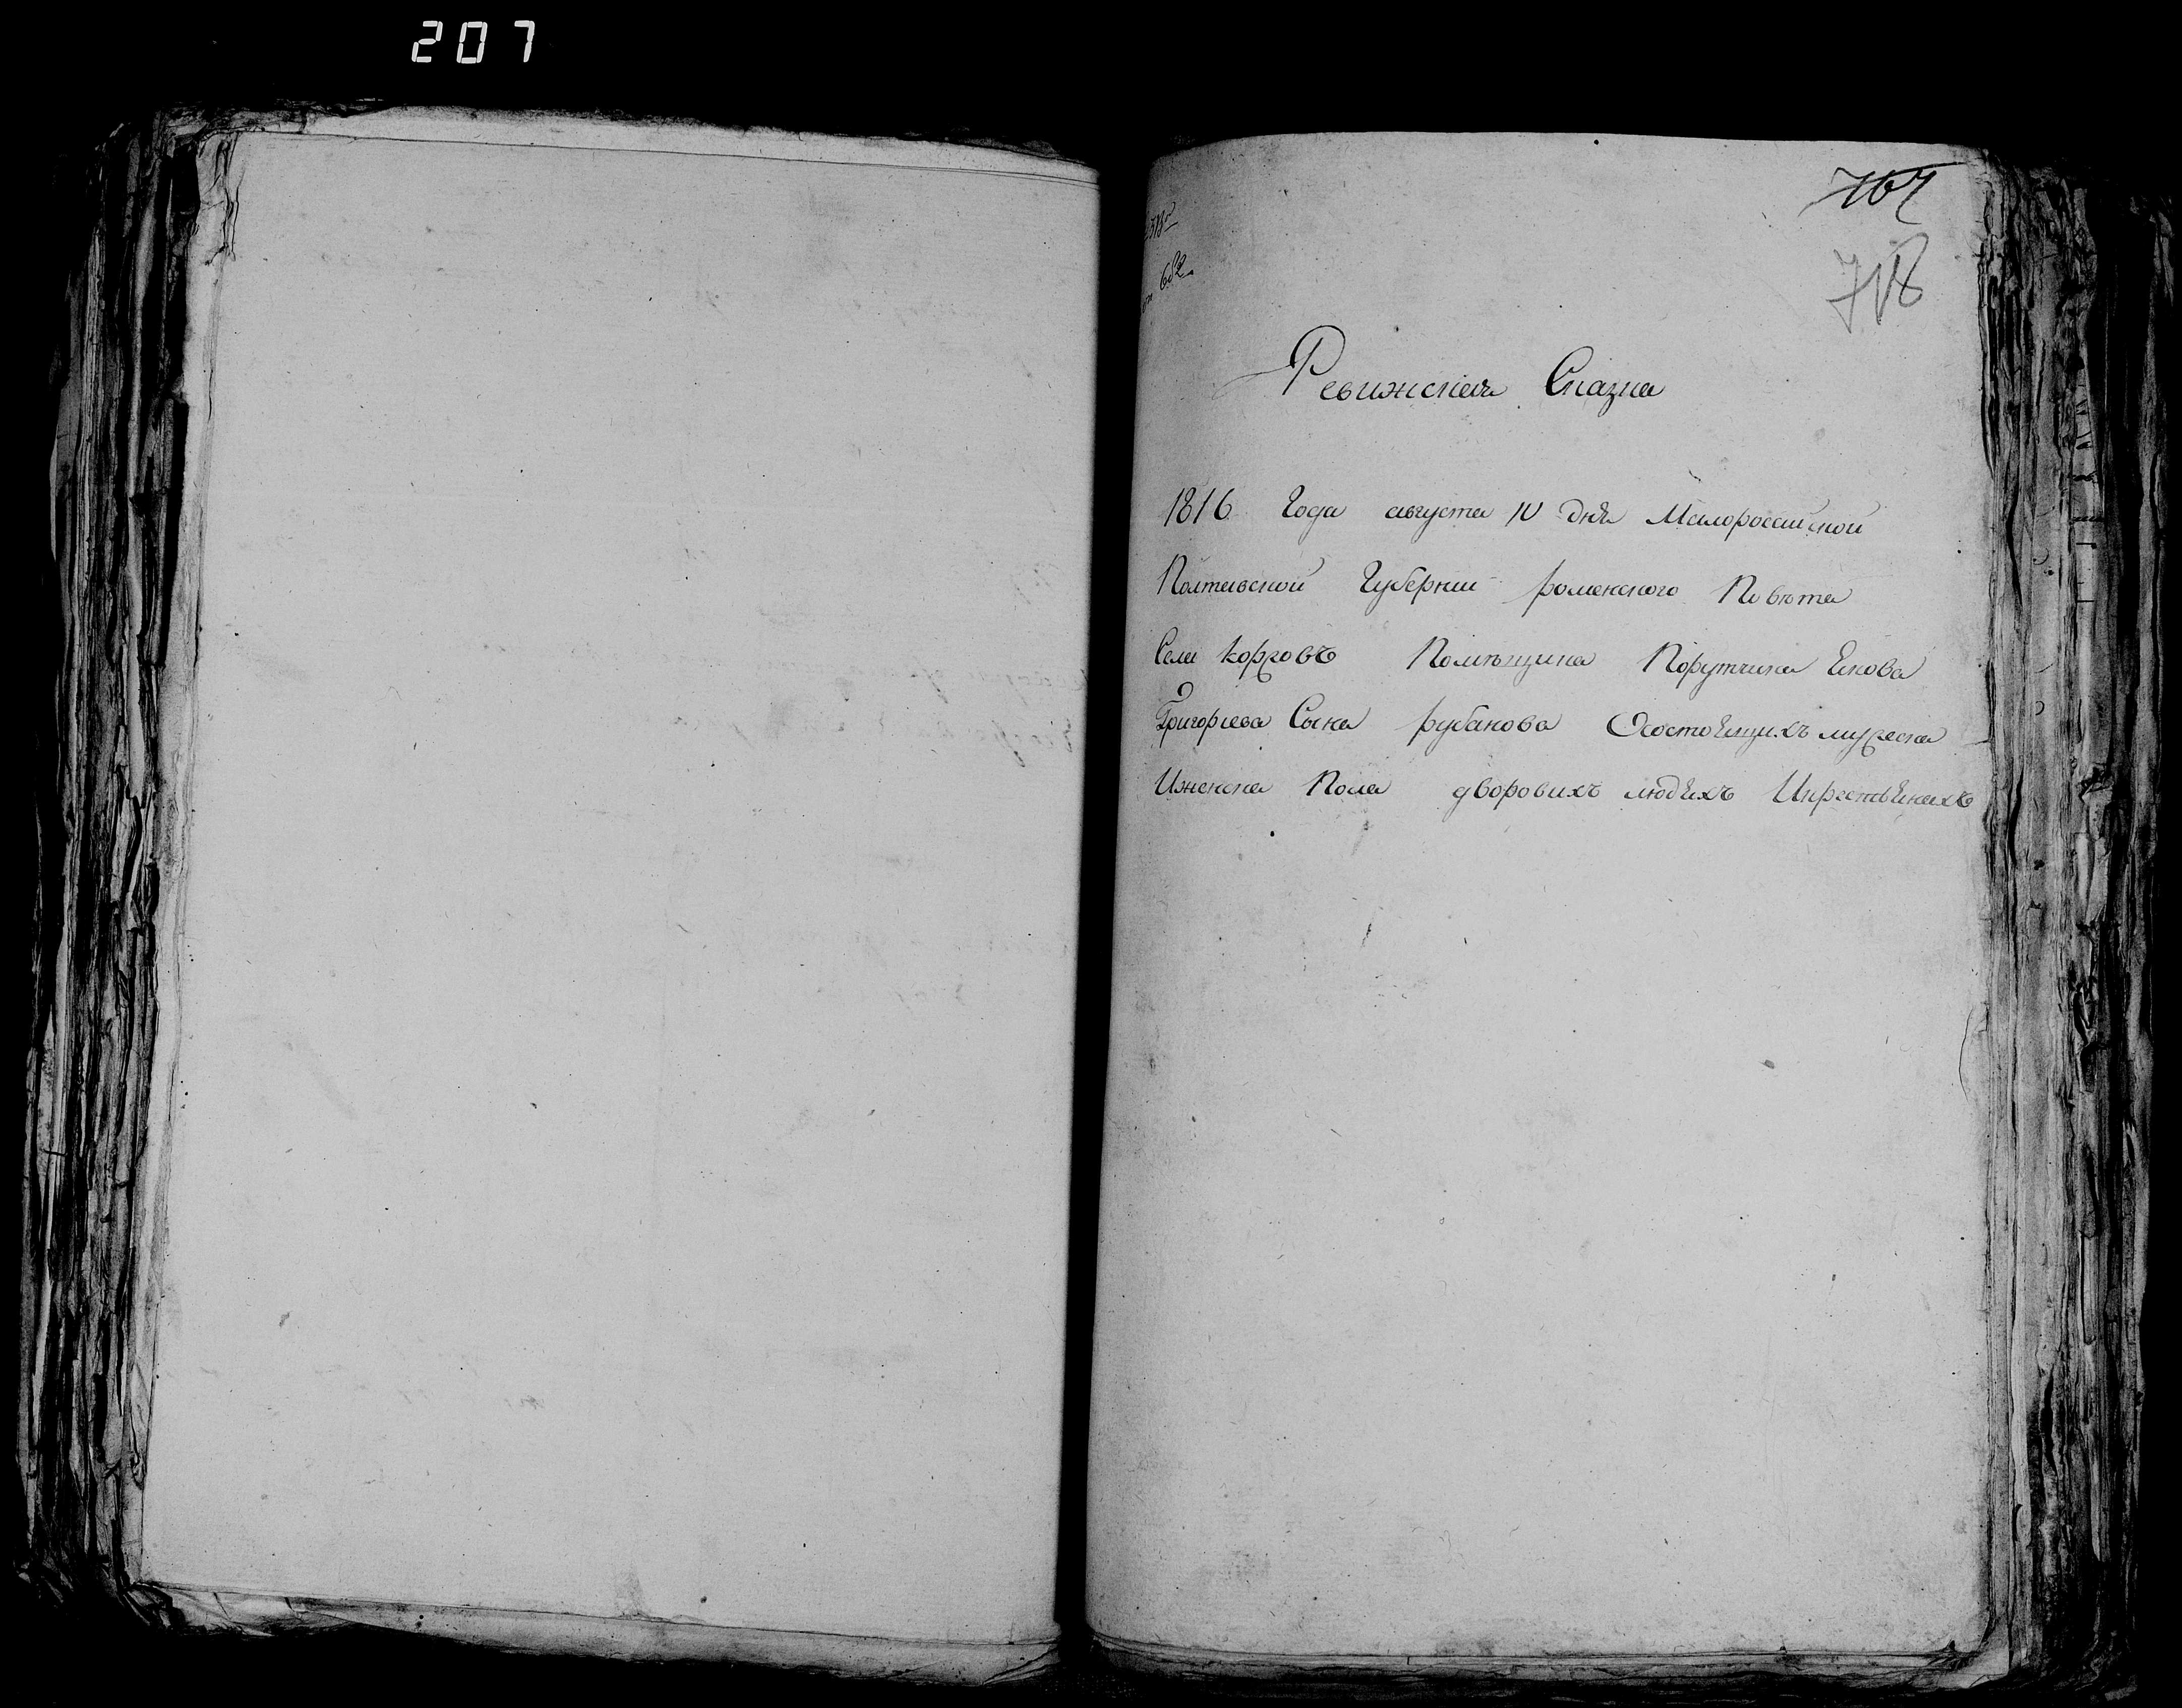 207
767
718
682
Ревижская Сказка
1816 Года августа 10 дня Малороссийской
Полтавской Губернии роменского Повѣта
Села коровъ Помѣщика Порутчика Якова
Григорьева Сына рубанова Осостоящихъ мужеска
Иженска Пола дворовихъ людяхъ Икрестьянахъ